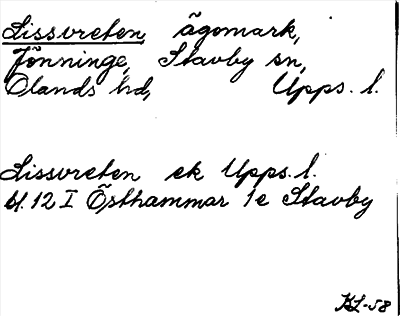 Lissvreten, ägomark,
Jönninge, Stavby sn,
Olands hd, Upps. l.
Lissvreten ek Upps. l.
bl. 12 I Östhammar 1e Stavby
KL-58